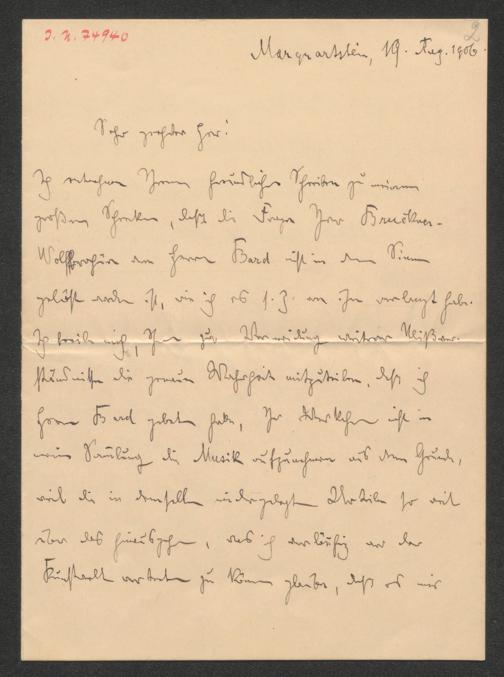 I. N. 74940
2
Marquartstein, 19. Aug. 1906.
Sehr geehrter Herr!
Ich entnehme Ihrem freundlichen Schreiben zu meinem
großen Schrecken, daß die Frage Ihrer Bruckner-
Wolfbrochüre an Herrn Bard nicht in dem Sinne
gelöst worden ist, wie ich es s. Z. von Ihm verlangt habe.
Ich beeile mich, Ihnen zur Vermeidung weiterer Mißver-
ständnisse die genaue Wahrheit mitzuteilen, daß ich
Herrn Bard gebeten habe, Ihr Werkchen nicht in
meine Samlung die Musik aufzunehmen aus dem Grunde,
weil die in demselben niedergelegten Urteile so weit
über das hinausgehen, was ich vorläufig vor der
Kunstwelt vertreten zu können glaube, daß es mir